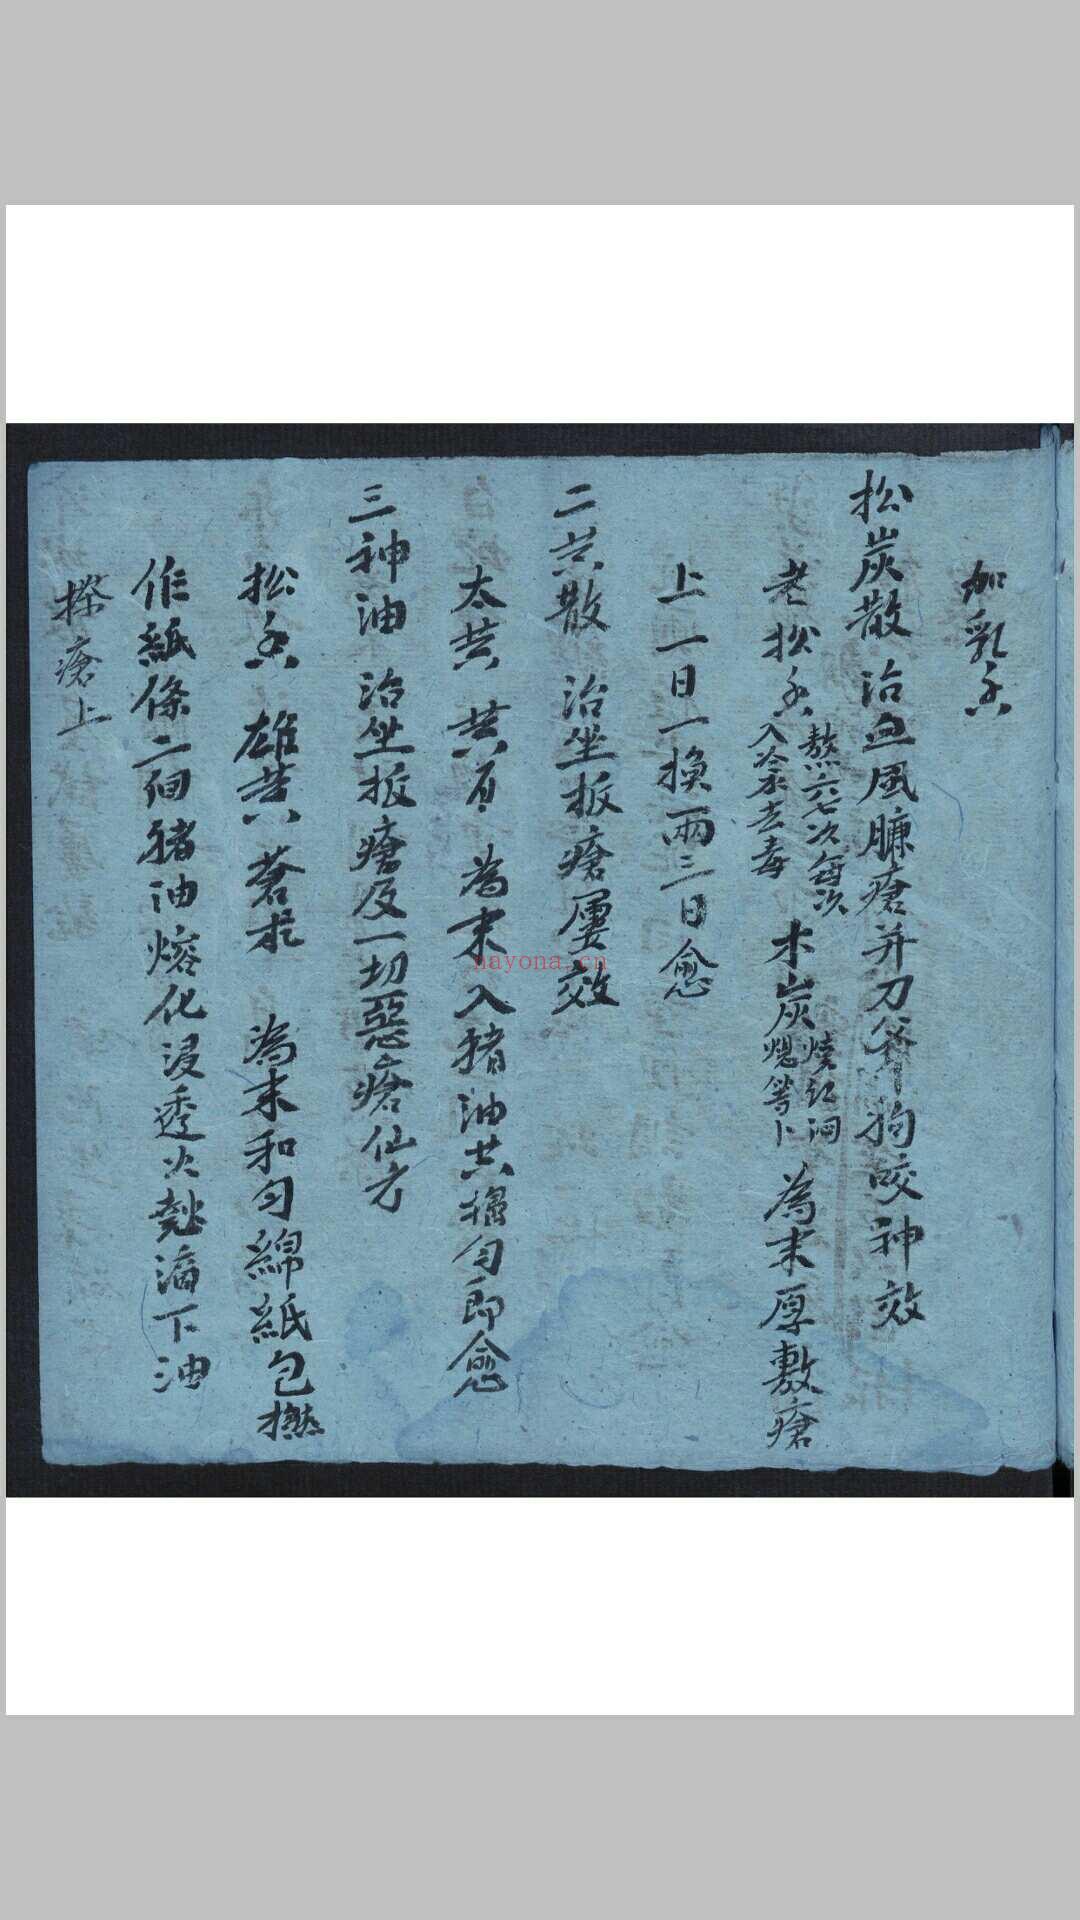 加乳香
松炭散 治血風臁瘡并刀斧狗咬神效
老松香 熬六七次每次入冷水去毒 木炭 燒紅悶熄等卜 為末厚敷瘡
上一日一換兩三日愈
二黃散 治坐板瘡屢效
大黃 黃丹 為末入豬油共搗勻即愈
三神油 治坐板瘡及一切惡瘡仙方
松香 雄黃 蒼朮 為末和勻綿紙包撚
作紙條二個豬油熔化浸透火𤇆滴下油
搽瘡上
nayona.cn